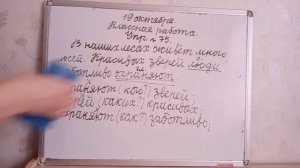 19 октября
Классная работа
Упр. 75.
В наших лесах живёт много
зверей. Красивых зверей люди
заботливо охраняют.
охраняют (кого?) зверей;
зверей (каких?) красивых;
охраняют (как?) заботливо;